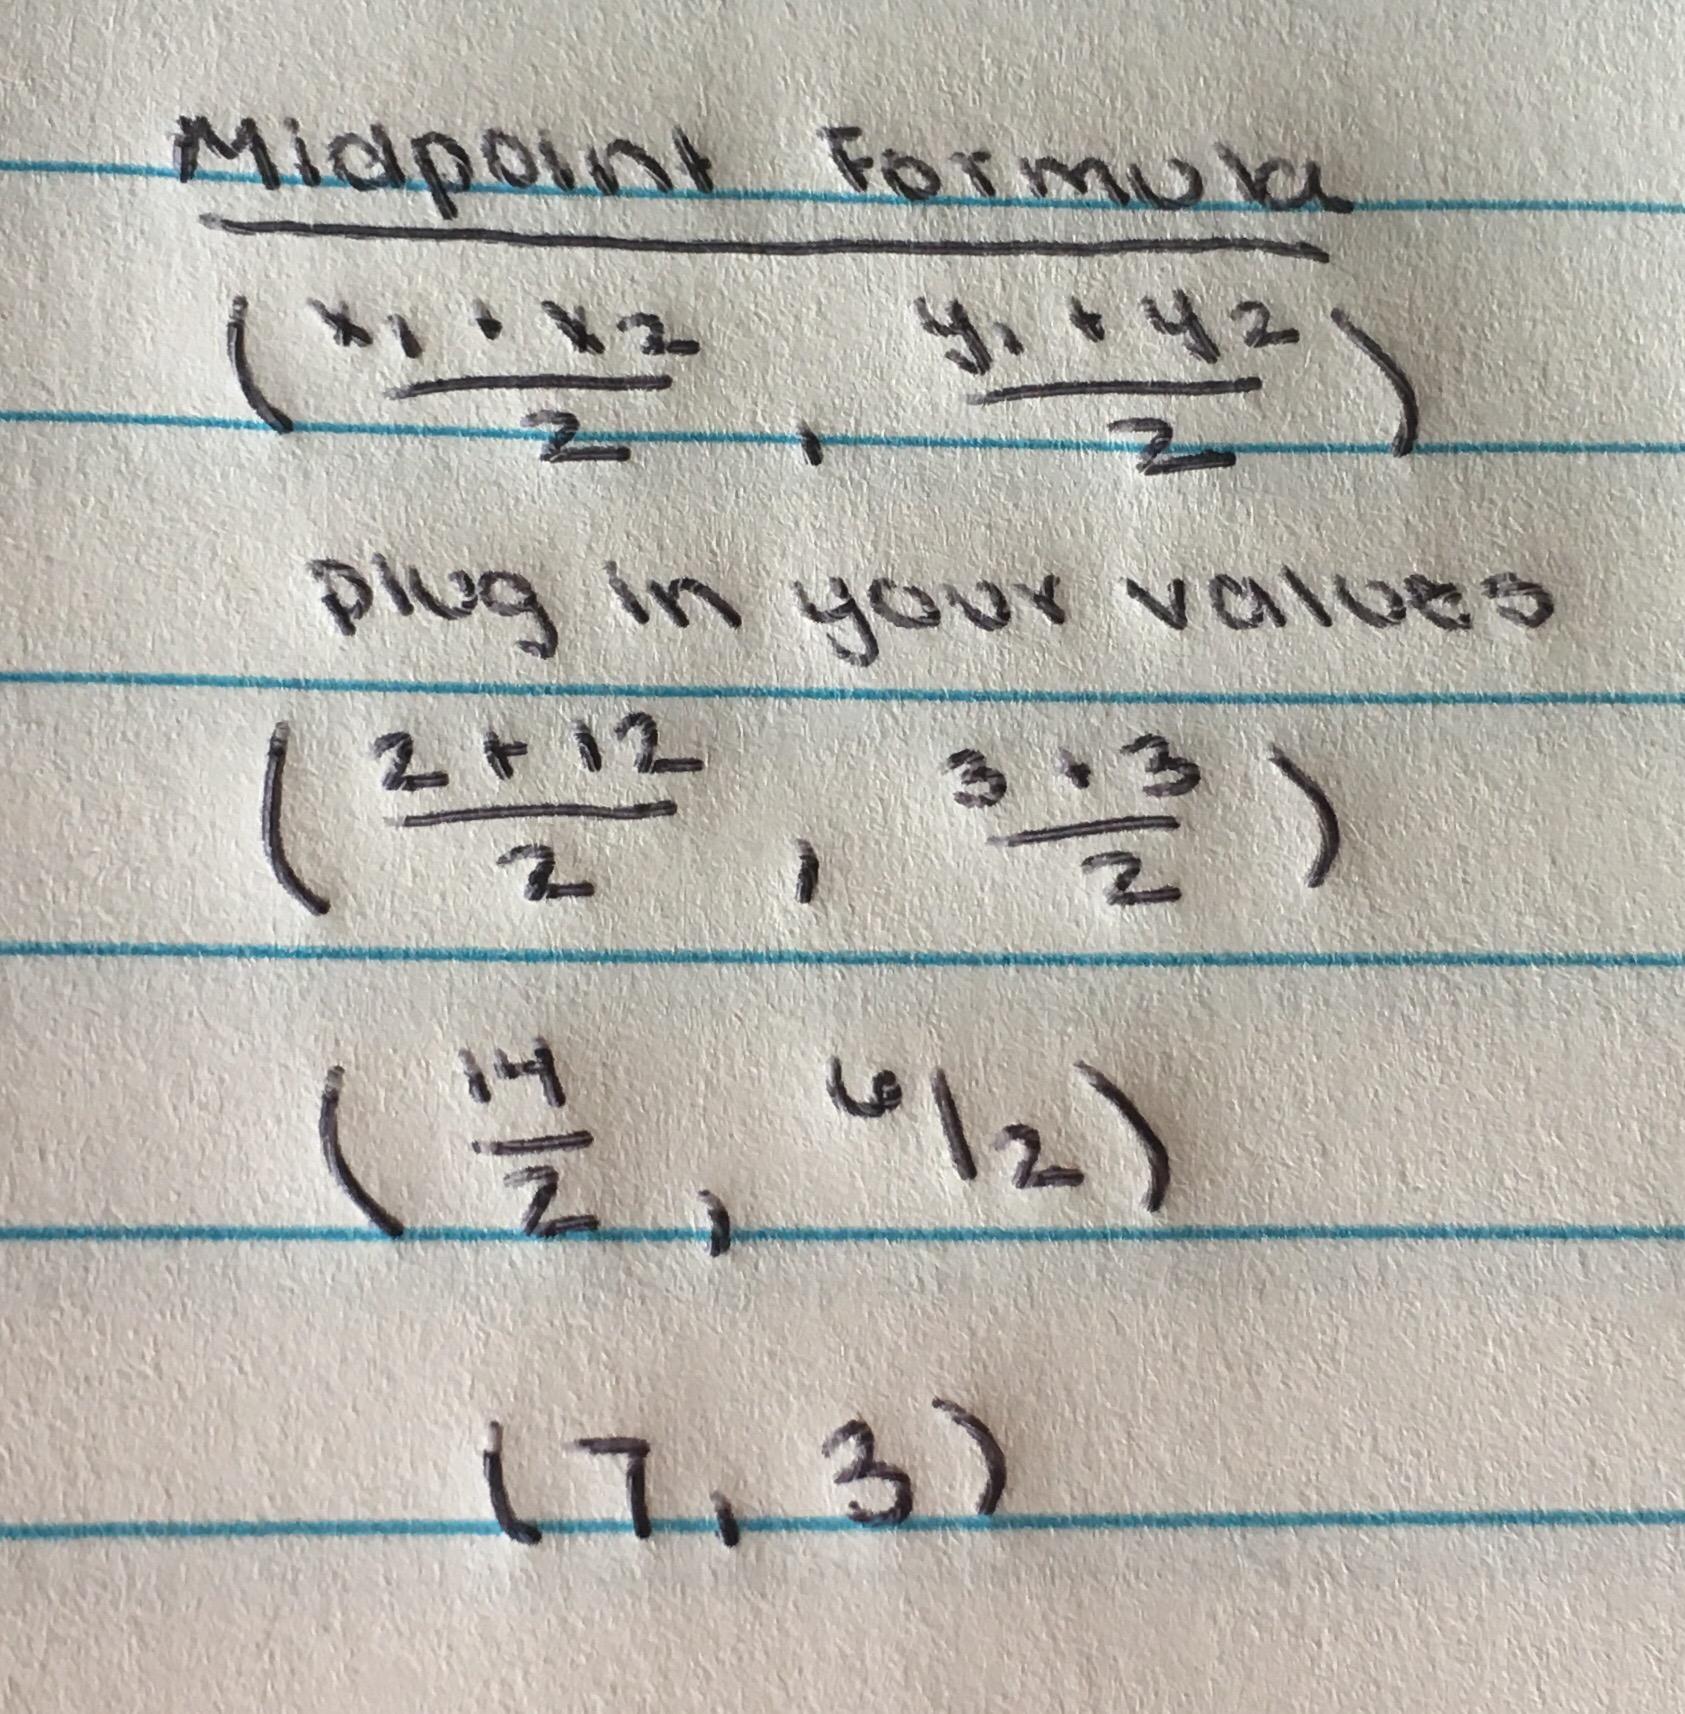 Midpoint Formula
(x₁ + x₂/2, y₁ + y₂/2)
plug in your values
(2 + 12/2, 3 + 3/2)
(14/2, 6/2)
(7, 3)